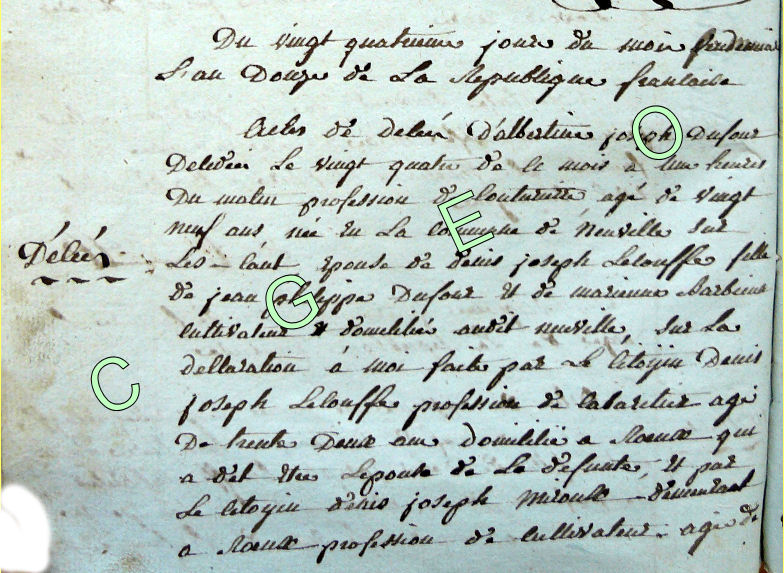 Du vingt quatrieme jour du mois vendemiai
L'an Douze de La Republique francaise
Actes de deleés D'albertine joseph Dufour
Deledeé Le vingt quatre de ce mois a heures
Du matin profession de Couturiere agé de vingt
neuf ans née en La commune de Neuville Sur
Déleés
Les-Caut epouse de denis joseph Lelouffe fille
de jean philippe Dufour et de marienne Barbieux
cultivateur et domicilié audit neuville, Sur La
dellaration à moi faite par Le Citoyin Denis
joseph Lelouffe profession de Cabaretier agé
De trente Deux ans domicilié a Roeux qui
a dit etre Lepoux de La defunte, et par
Le Citoyin denis joseph miroux demeurant
a Roeux profession de Cultivateur agé de
O
E
G
C